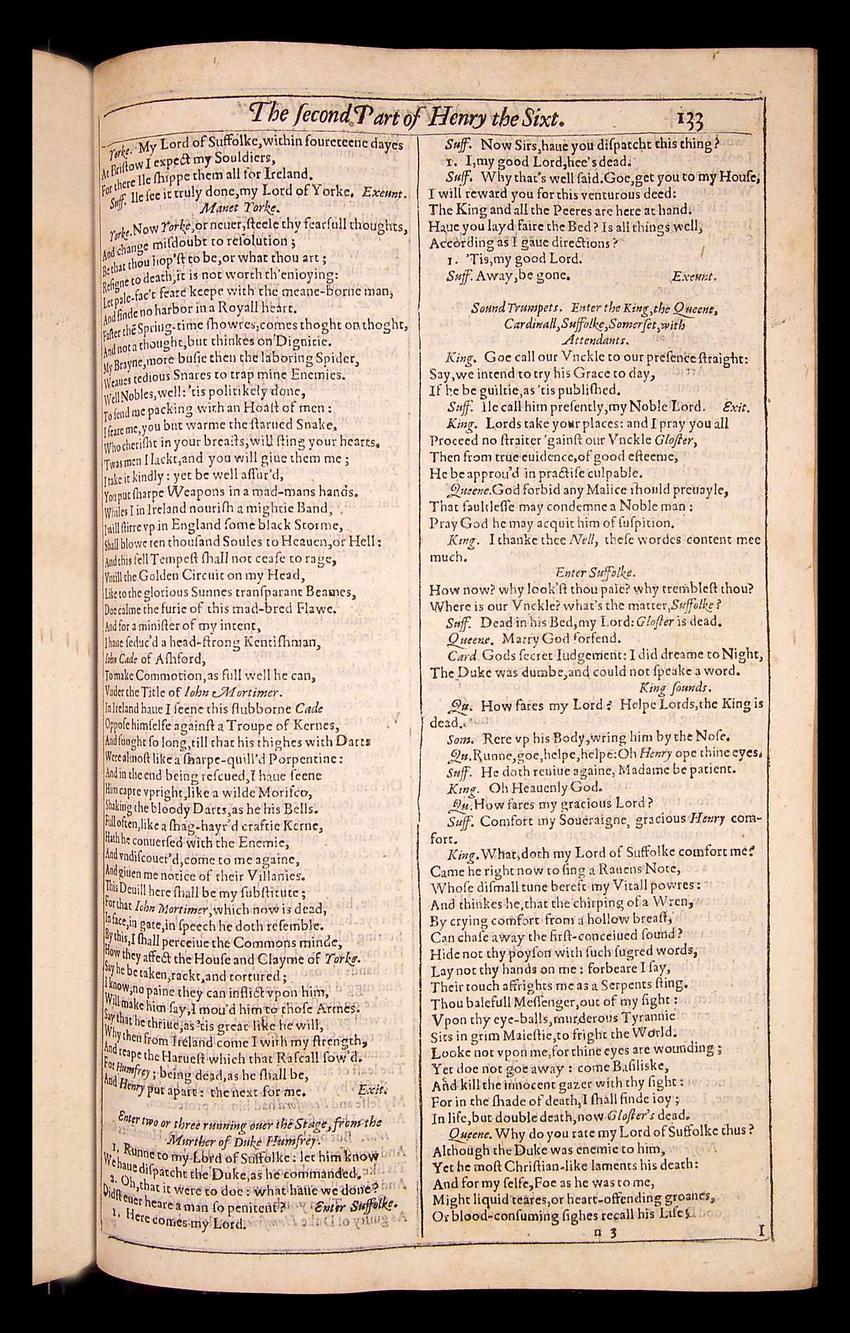 The second Part of Henry the Sixt. 133
Yorke. My Lord of Suffolke, within foureteene dayes
At Bristow I expect my Souldiers,
For there Ile shippe them all for Ireland.
Suff. Ile see it truly done, my Lord of Yorke. Exeunt.
Manet Yorke.
Yorke. Now Yorke, or neuer, steele thy fearfull thoughts,
And change misdoubt to resolution;
Be that thou hop'st to be, or what thou art;
Resigne to death, it is not worth th'enioying:
Let pale-fac't feare keepe with the meane-borne man,
And finde no harbor in a Royall heart.
Faster the Spring-time showres, comes thoght on thoght,
And not a thought, but thinkes on Dignitie.
My Brayne, more busie then the laboring Spider,
Weaues tedious Snares to trap mine Enemies.
Well Nobles, well: 'tis politikely done,
To send me packing with an Hoast of men:
I feare me, you but warme the starued Snake,
Who cherisht in your breasts, will sting your hearts.
'Twas men I lackt, and you will giue them me;
I take it kindly: yet be well assur'd,
You put sharpe Weapons in a mad-mans hands.
Whiles I in Ireland nourish a mightie Band,
I will stirre vp in England some black Storme,
Shall blowe ten thousand Soules to Heauen, or Hell:
And this fell Tempest shall not cease to rage,
Vntill the Golden Circuit on my Head,
Like to the glorious Sunnes transparant Beames,
Doe calme the furie of this mad-bred Flawe.
And for a minister of my intent,
I haue seduc'd a head-strong Kentishman,
Iohn Cade of Ashford,
To make Commotion, as full well he can,
Vnder the Title of Iohn Mortimer.
In Ireland haue I seene this stubborne Cade
Oppose himselfe against a Troupe of Kernes,
And fought so long, till that his thighes with Darts
Were almost like a sharpe-quill'd Porpentine:
And in the end being rescued, I haue seene
Him capre vpright, like a wilde Morisco,
Shaking the bloody Darts, as he his Bells.
Full often, like a shag-hayr'd craftie Kerne,
Hath he conuersed with the Enemie,
And vndiscouer'd, come to me againe,
And giuen me notice of their Villanies.
This Deuill here shall be my substitute;
For that Iohn Mortimer, which now is dead,
In face, in gate, in speech he doth resemble.
By this, I shall perceiue the Commons minde,
How they affect the House and Clayme of Yorke.
Say he be taken, rackt, and tortured;
I know, no paine they can inflict vpon him,
Will make him say, I mou'd him to those Armes.
Say that he thriue, as 'tis great like he will,
Why then from Ireland come I with my strength,
And reape the Haruest which that Rascall sow'd.
For Humfrey; being dead, as he shall be,
And Henry put apart: the next for me. Exit.
Enter two or three running ouer the Stage, from the
Murther of Duke Humfrey.
1. Runne to my Lord of Suffolke: let him know
We haue dispatcht the Duke, as he commanded.
2. Oh, that it were to doe: what haue we done?
Didst euer heare a man so penitent? Enter Suffolke.
1. Here comes my Lord.
Suff. Now Sirs, haue you dispatcht this thing?
1. I, my good Lord, hee's dead.
Suff. Why that's well said. Goe, get you to my House,
I will reward you for this venturous deed:
The King and all the Peeres are here at hand.
Haue you layd faire the Bed? Is all things well,
According as I gaue directions?
1. 'Tis, my good Lord.
Suff. Away, be gone. Exeunt.
Sound Trumpets. Enter the King, the Queene,
Cardinall, Suffolke, Somerset, with
Attendants.
King. Goe call our Vnckle to our presence straight:
Say, we intend to try his Grace to day,
If he be guiltie, as 'tis published.
Suff. Ile call him presently, my Noble Lord. Exit.
King. Lords take your places: and I pray you all
Proceed no straiter 'gainst our Vnckle Gloster,
Then from true euidence, of good esteeme,
He be approu'd in practise culpable.
Queene. God forbid any Malice should preuayle,
That faultlesse may condemne a Noble man:
Pray God he may acquit him of suspition.
King. I thanke thee Nell, these wordes content mee
much.
Enter Suffolke.
How now? why look'st thou pale? why tremblest thou?
Where is our Vnckle? what's the matter, Suffolke?
Suff. Dead in his Bed, my Lord: Gloster is dead.
Queene. Marry God forfend.
Card. Gods secret Iudgement: I did dreame to Night,
The Duke was dumbe, and could not speake a word.
King sounds.
Qu. How fares my Lord? Helpe Lords, the King is
dead.
Som. Rere vp his Body, wring him by the Nose.
Qu. Runne, goe, helpe, helpe: Oh Henry ope thine eyes.
Suff. He doth reuiue againe, Madame be patient.
King. Oh Heauenly God.
Qu. How fares my gracious Lord?
Suff. Comfort my Soueraigne, gracious Henry com-
fort.
King. What, doth my Lord of Suffolke comfort me?
Came he right now to sing a Rauens Note,
Whose dismall tune bereft my Vitall powres:
And thinkes he, that the chirping of a Wren,
By crying comfort from a hollow breast,
Can chase away the first-conceiued sound?
Hide not thy poyson with such sugred words,
Lay not thy hands on me: forbeare I say,
Their touch affrights me as a Serpents sting.
Thou balefull Messenger, out of my sight:
Vpon thy eye-balls, murderous Tyrannie
Sits in grim Maiestie, to fright the World.
Looke not vpon me, for thine eyes are wounding;
Yet doe not goe away: come Basiliske,
And kill the innocent gazer with thy sight:
For in the shade of death, I shall finde ioy;
In life, but double death, now Gloster's dead.
Queene. Why do you rate my Lord of Suffolke thus?
Although the Duke was enemie to him,
Yet he most Christian-like laments his death:
And for my selfe, Foe as he was to me,
Might liquid teares, or heart-offending groanes,
Or blood-consuming sighes recall his Life;
n 3 I